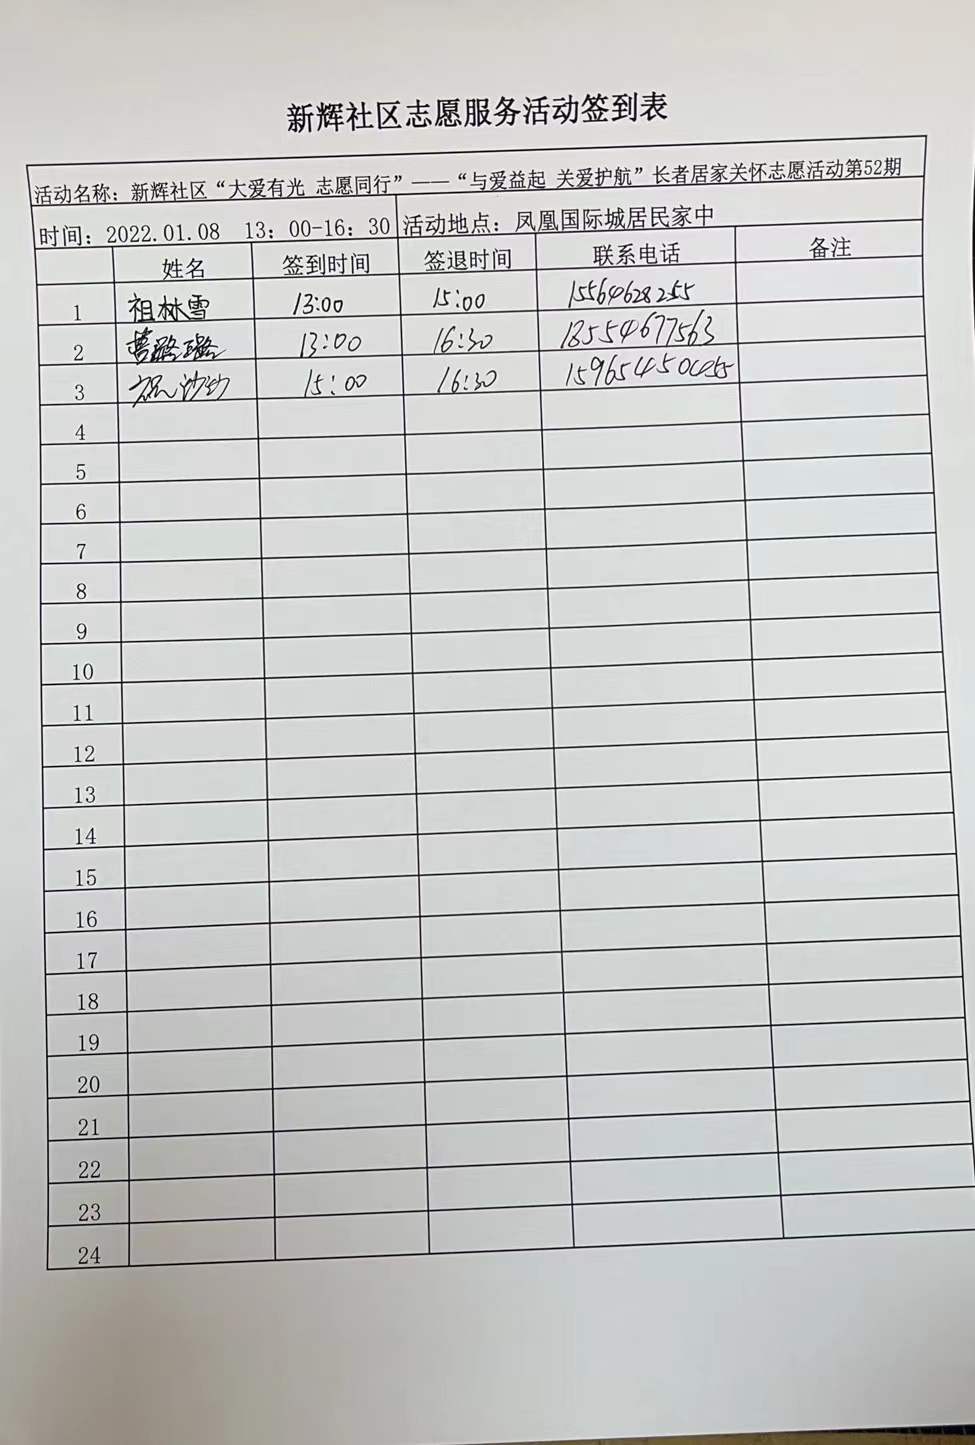 新辉社区志愿服务活动签到表
活动名称：新辉社区“大爱有光 志愿同行”——“与爱益起 关爱护航”长者居家关怀志愿活动第52期
时间：2022.01.08 13：00-16：30 活动地点：凤凰国际城居民家中
姓名 签到时间 签退时间 联系电话 备注
1 祖林雪 13:00 15:00 15564628255
2 13:00 16:30 18554677563
3 15:00 16:30
4
5
6
7
8
9
10
11
12
13
14
15
16
17
18
19
20
21
22
23
24